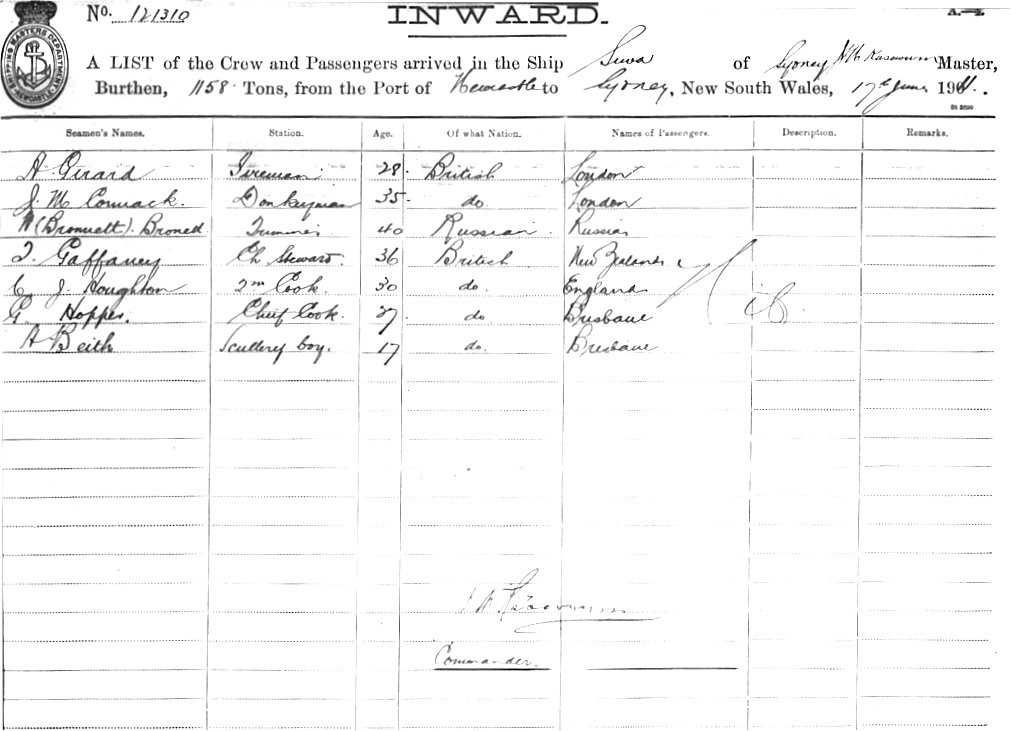 No. 121310 INWARD. A.—4.
A LIST of the Crew and Passengers arrived in the Ship Suva of Sydney Master,
Burthen, 1158 Tons, from the Port of Newcastle to Sydney, New South Wales, 17th June 1911.
SHIPPING MASTERS DEPARTMENT NEWCASTLE
Seamen's Names. Station. Age. Of what Nation. Names of Passengers. Description. Remarks.
A. Girard Fireman 28. British London
J. McCormack. Donkeyman 35. do London
(Bronnett). Broned Trimmer 40 Russian. Russia
T. Gaffaney Ch Steward. 36 British New Zealand
C. J. Houghton 2nd Cook. 30 do. England
G. Hopper. Chief Cook. 27. do Brisbane
A Beith Scullery boy. 17 do. Brisbane
Nil
Commander.